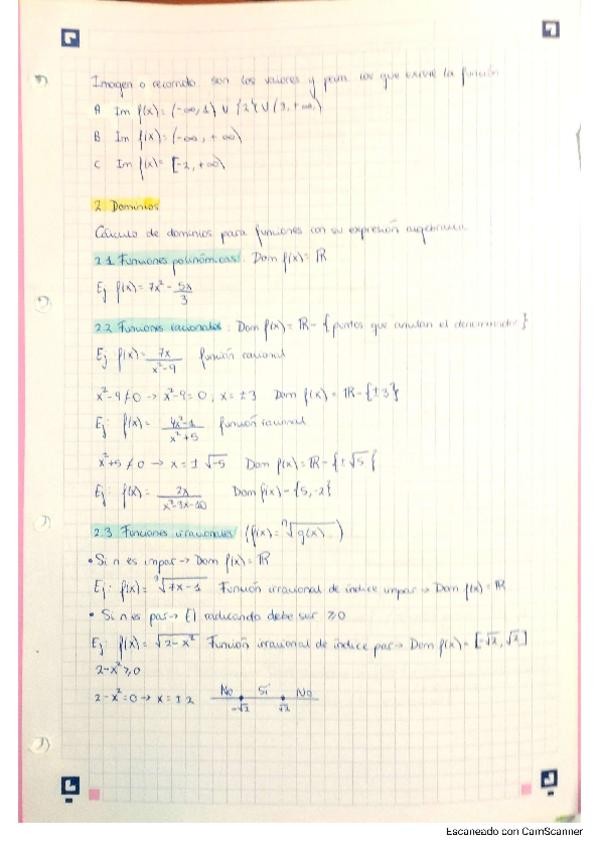 Imagen o recorrido: son los valores y para los que existe la función
A Im f(x) = (-∞, 1) ∪ {2} ∪ (3, +∞)
B Im f(x) = (-∞, +∞)
C Im f(x) = [-2, +∞)
2. Dominios
Cálculo de dominios para funciones con su expresión algebraica.
2.1 Funciones polinómicas: Dom f(x) = ℝ
Ej f(x) = 7x² - 5x/3
2.2 Funciones racionales: Dom f(x) = ℝ - {puntos que anulan el denominador}
Ej f(x) = 7x/(x²-9) función racional
x²-9≠0 → x²-9=0; x = ±3 Dom f(x) = ℝ - {±3}
Ej: f(x) = (4x²-1)/(x²+5) función racional
x²+5≠0 → x = ± √-5 Dom f(x) = ℝ - {±√5}
Ej: f(x) = 2x/(x²-3x-10) Dom f(x) - {5, -2}
2.3 Funciones irracionales (f(x) = ⁿ√g(x))
• Si n es impar → Dom f(x) = ℝ
Ej: f(x) = ³√7x-1 Función irracional de índice impar → Dom f(x) = ℝ
• Si n es par → El radicando debe ser ≥0
Ej: f(x) = √2-x² Función irracional de índice par → Dom f(x) = [-√2, √2]
2-x²≥0
2-x²=0 → x = ±2 No Sí No
-√2 √2
Escaneado con CamScanner